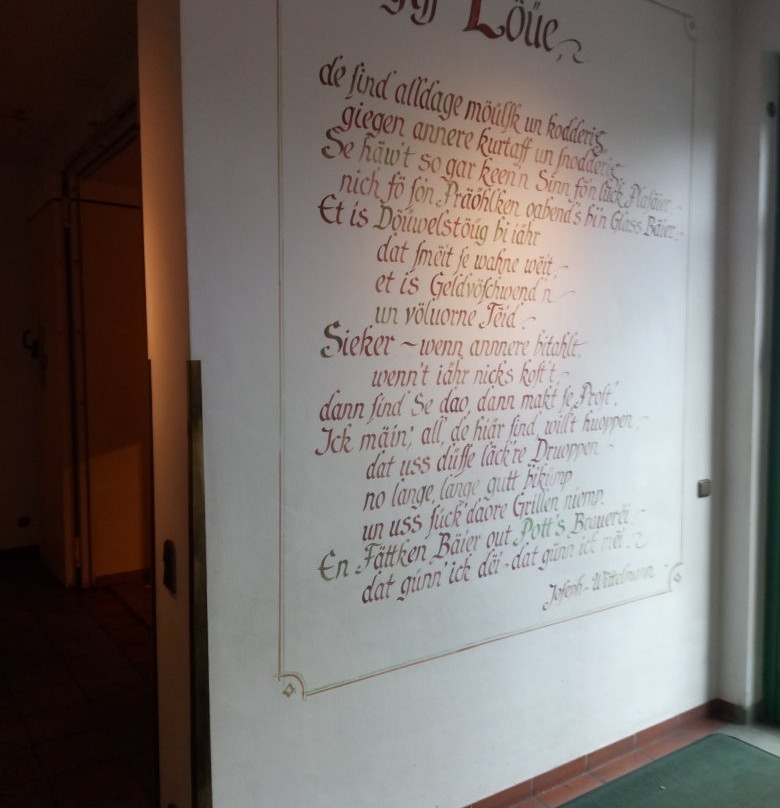 Löüe,
de sind alldage möülsk un kodderig,
giegen annere kurtaff un snodderig.
Se häw't so gar keen'n Sinn fö'n lück Plasäier
nich fö son Präöhlken oabend's bi'n Glass Bäier.
Et is Döüwelstöüg bi iähr
dat smëit se wahne wëit,
et is Geldvöschwend'n
un völuorne Tëid.
Sieker ~ wenn annnere bitahlt,
wenn't iähr nicks kost't,
dann sind Se dao, dann makt se „Prost".
Ick mäin', all', de hiär sind, will't huoppen,
dat uss düsse läck're Druoppen
no lange, lange gutt bikümp
un uss fück'daore Grillen niemp.
En Fättken Bäier out Pott's Brauerëi,
dat günn' ick dëi - dat günn ick mëi.
Joseph - Wittelmann